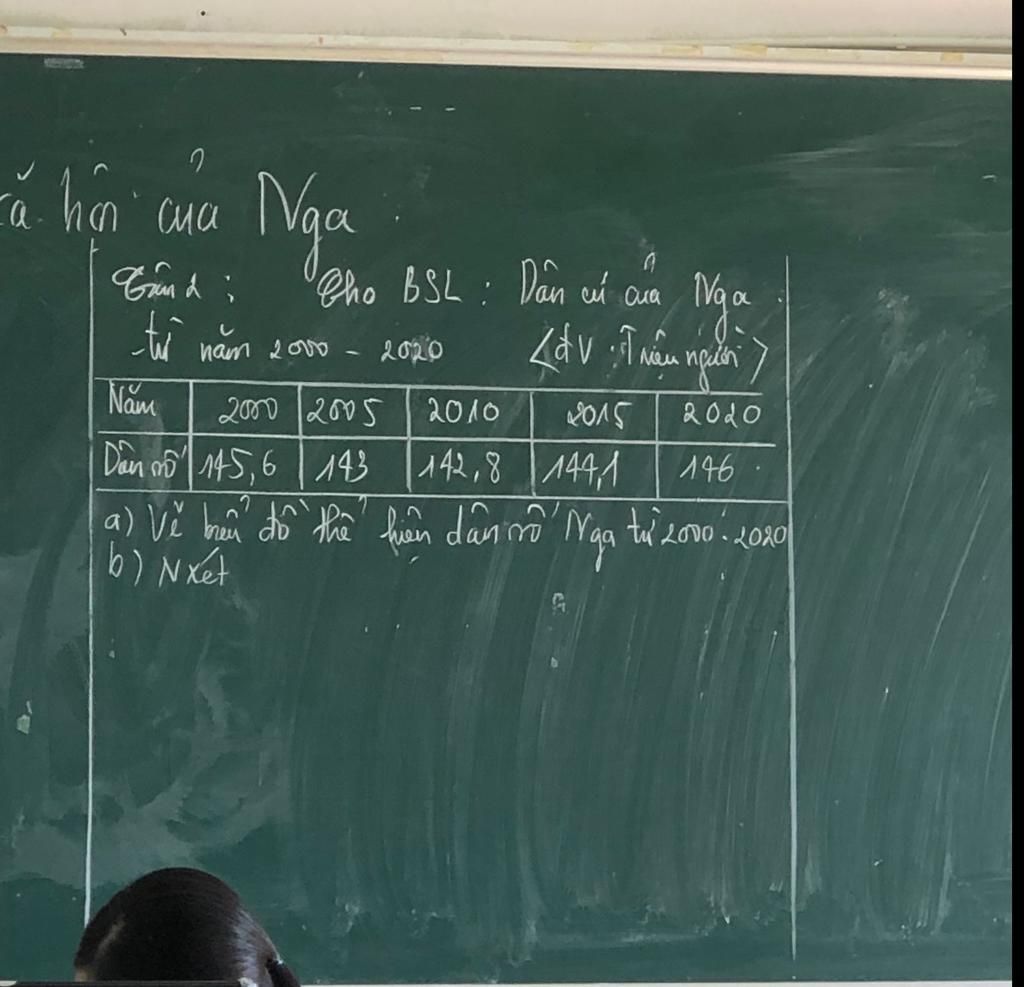 xã hội của Nga
Câu 2: Cho BSL: Dân cư của Nga
từ năm 2000 - 2020 <đv: Triệu người>
Năm 2000 2005 2010 2015 2020
Dân số 145,6 143 142,8 144,1 146
a) Vẽ biểu đồ thể hiện dân số Nga từ 2000-2020
b) N xét